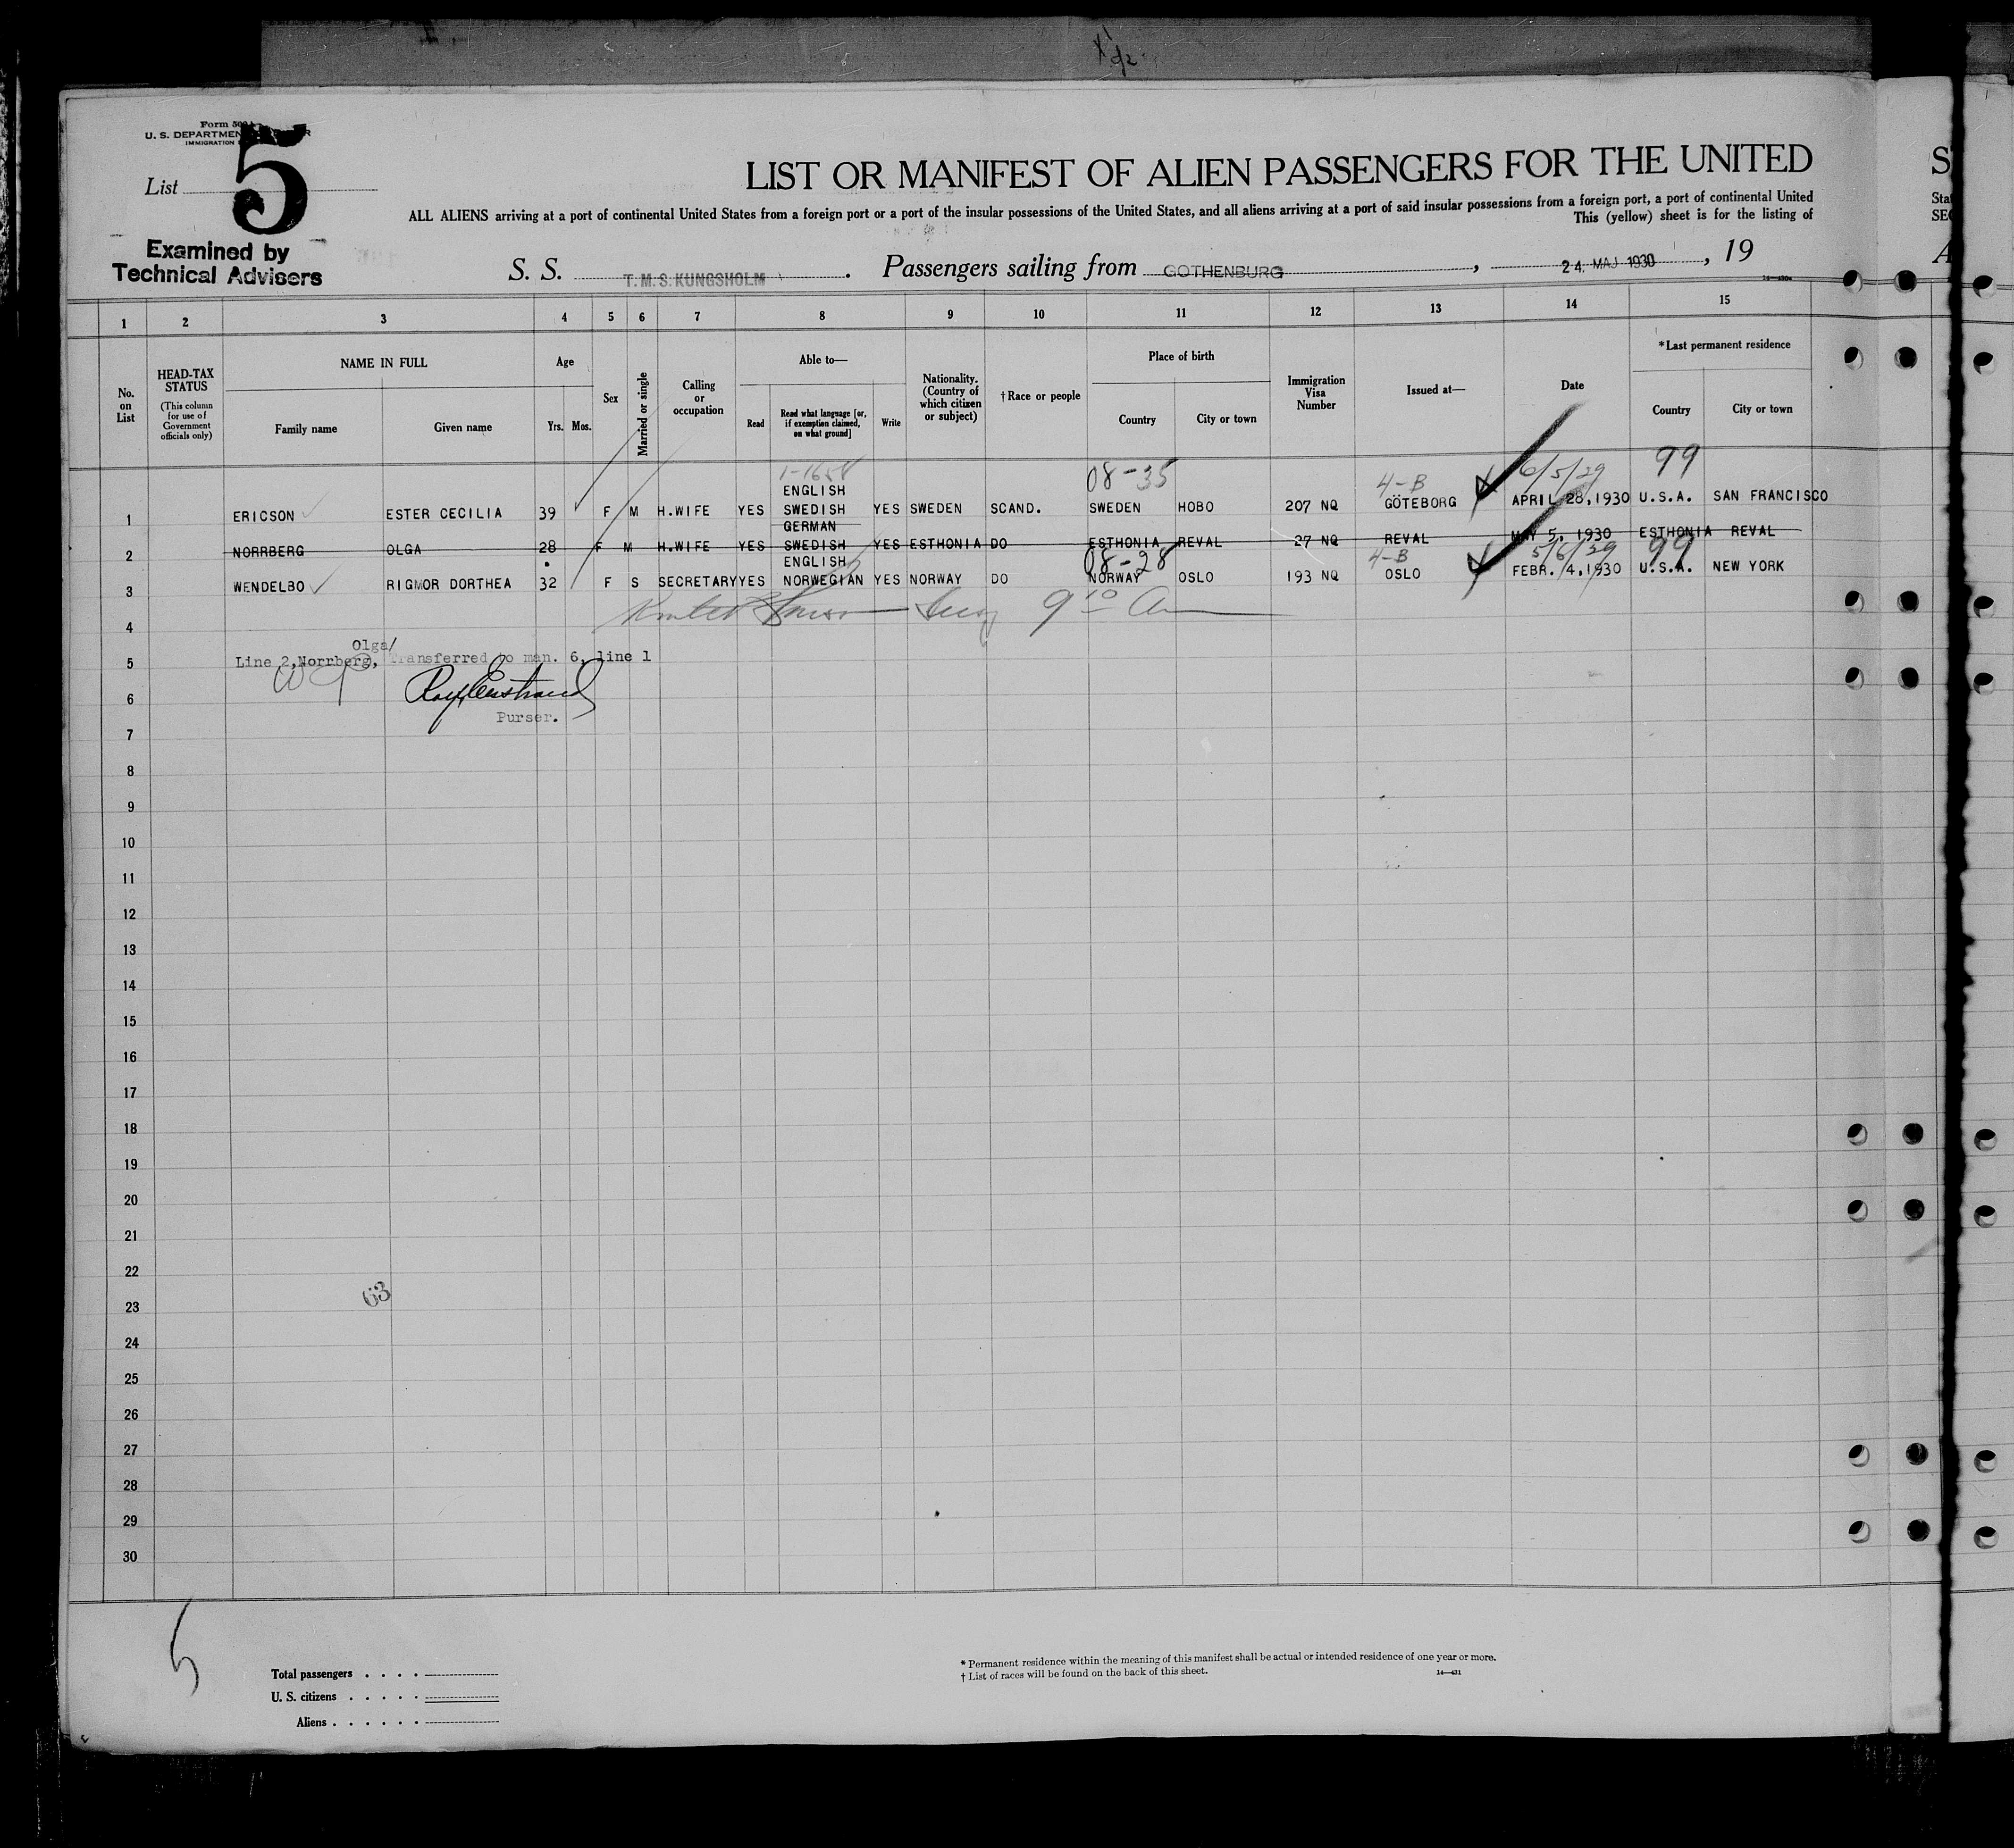 Form 500
U. S. DEPARTMEN
IMMIGRATION
List 5
Examined by
Technical Advisers
LIST OR MANIFEST OF ALIEN PASSENGERS FOR THE UNITED
ALL ALIENS arriving at a port of continental United States from a foreign port or a port of the insular possessions of the United States, and all aliens arriving at a port of said insular possessions from a foreign port, a port of continental United
This (yellow) sheet is for the listing of
S. S. T. M. S. KUNGSHOLM . Passengers sailing from GOTHENBURG , 24. MAJ 1930 , 19
1 2 3 4 5 6 7 8 9 10 11 12 13 14 15
No. on List
HEAD-TAX STATUS
(This column for use of Government officials only)
NAME IN FULL
Family name Given name
Age
Yrs. Mos.
Sex
Married or single
Calling or occupation
Able to—
Read
Read what language [or, if exemption claimed, on what ground]
Write
Nationality. (Country of which citizen or subject)
†Race or people
Place of birth
Country City or town
Immigration Visa Number
Issued at—
Date
*Last permanent residence
Country City or town
1-1658 08-35 4-B 6/5/29 99
ENGLISH
1 ERICSON ESTER CECILIA 39 F M H.WIFE YES SWEDISH YES SWEDEN SCAND. SWEDEN HOBO 207 NQ GÖTEBORG APRIL 28,1930 U.S.A. SAN FRANCISCO
GERMAN
2 NORRBERG OLGA 28 F M H.WIFE YES SWEDISH YES ESTHONIA DO ESTHONIA REVAL 27 NQ REVAL MAY 5, 1930 ESTHONIA REVAL
ENGLISH 08-28 4-B 5/6/29 99
3 WENDELBO RIGMOR DORTHEA 32 F S SECRETARY YES NORWEGIAN YES NORWAY DO NORWAY OSLO 193 NQ OSLO FEBR. 4,1930 U.S.A. NEW YORK
9 10 Am
4
Olga/
5 Line 2,Norrberg, transferred to man. 6, line 1
6
Purser.
7
8
9
10
11
12
13
14
15
16
17
18
19
20
21
22
63
23
24
25
26
27
28
29
30
5
Total passengers
U. S. citizens
Aliens
* Permanent residence within the meaning of this manifest shall be actual or intended residence of one year or more.
† List of races will be found on the back of this sheet.
14—431